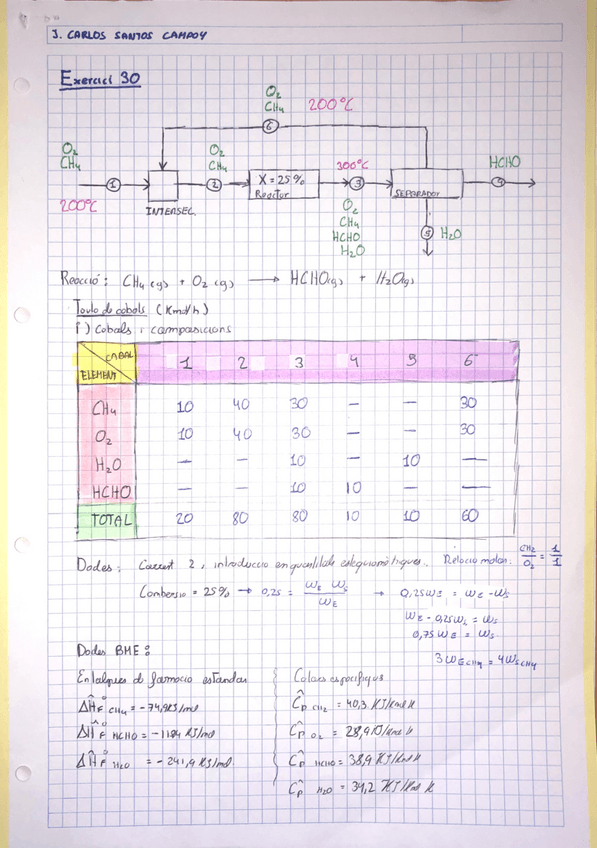 J. CARLOS SANTOS CAMPOY
Exercici 30
O₂
CH₄
200°C
6
O₂
CH₄
200°C
1
INTERSEC.
O₂
CH₄
2
X = 25%
Reactor
300°C
3
O₂
CH₄
HCHO
H₂O
SEPARADOR
HCHO
4
5
H₂O
Reacció: CH₄ (g) + O₂ (g) → HCHO(g) + H₂O(g)
Taula de cabals (Kmol/h)
1) Cabals i composicions
CABAL
ELEMENT
1 2 3 4 5 6
CH₄ 10 40 30 — — 30
O₂ 10 40 30 — — 30
H₂O — — 10 — 10 —
HCHO — — 10 10 — —
TOTAL 20 80 80 10 10 60
Dades: Corrent 2, introduccio en quantitats estequiomètriques. Relacio molar: CH₄/O₂ = 1/1
Conversio = 25% → 0,25 = (WE Ws)/WE → 0,25WE = WE - Ws
WE - 0,25WE = Ws
0,75 WE = Ws
3WE CH4 = 4Ws CH4
Dades BME:
Entalpies de formacio estandar
ΔĤ°F CH4 = -74,9KJ/mol
ΔĤ°F HCHO =
ΔĤ°F H2O = -241,9 KJ/mol
Calors especifiques
Ĉp CH2 = 40,3 KJ/kmol K
Ĉp O2 = 28,9 KJ/kmol K
Ĉp HCHO = 38,9 KJ/Kmol K
Ĉp H2O = 34,2 KJ/Kmol K